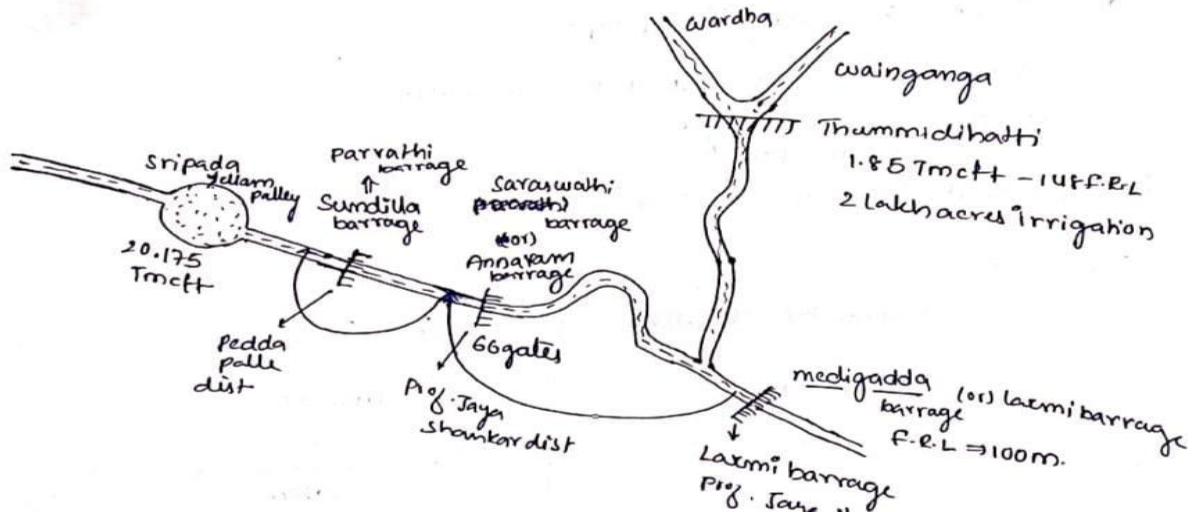 wardha
wainganga
Thummidihatti
1.85 Tmcft - 148 F.R.L
2 Lakh acres irrigation
Sripada
yellam
palley
20.175
Tmcft
parvathi
barrage
⇑
Sundilla
barrage
Saraswathi
barrage
(or)
Annaram
barrage
66gates
Pedda
palle
dist
Prof. Jaya
Shankar dist
medigadda (or) laxmi barrage
barrage
F.R.L ⇒ 100m.
Laxmi barrage
Prof. Jaya